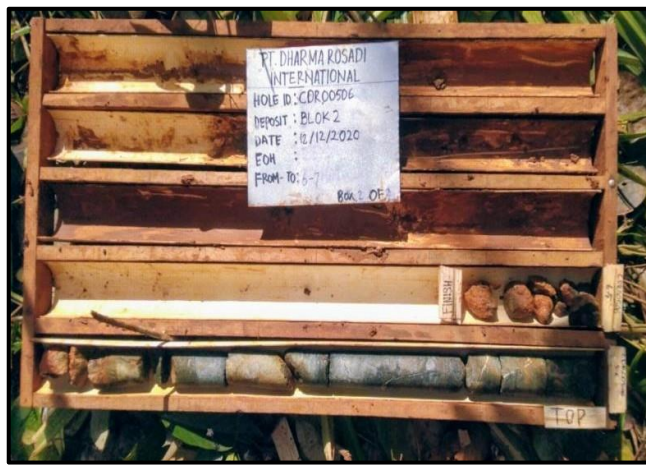 PT. DHARMA ROSADI
INTERNATIONAL
HOLE ID : CDR00506
DEPOSIT : BLOK 2
DATE : 12/12/2020
EOH :
FROM-TO : 6-7
BOX 2 OF
FINISH
TOP